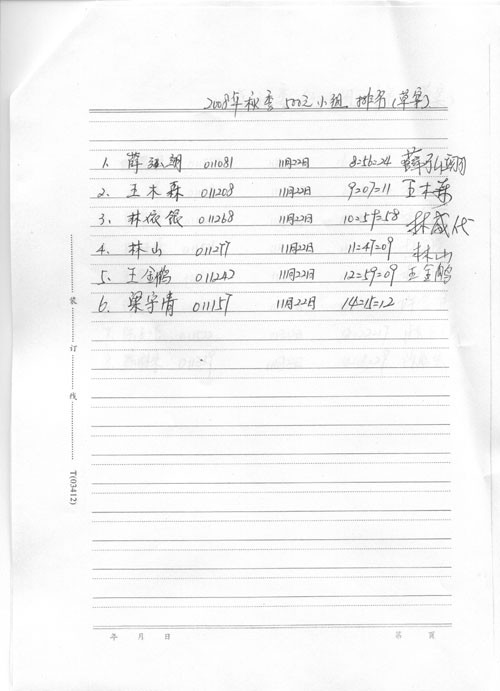 2008年秋季 500元小组 排名(草案)
1. 薛 翔 011081 11月22日 8=56=24
2. 王木森 011208 11月22日 9=07=11 王木森
3. 林依银 011268 11月22日 10=59=58 林成代
4. 林山 011277 11月22日 11=47=09 林山
5. 王金鹤 11月22日 12=59=09 王金鹤
6. 梁宇清 011157 11月22日 14=15=12
装
订
线
T(03412)
年 月 日 第 页